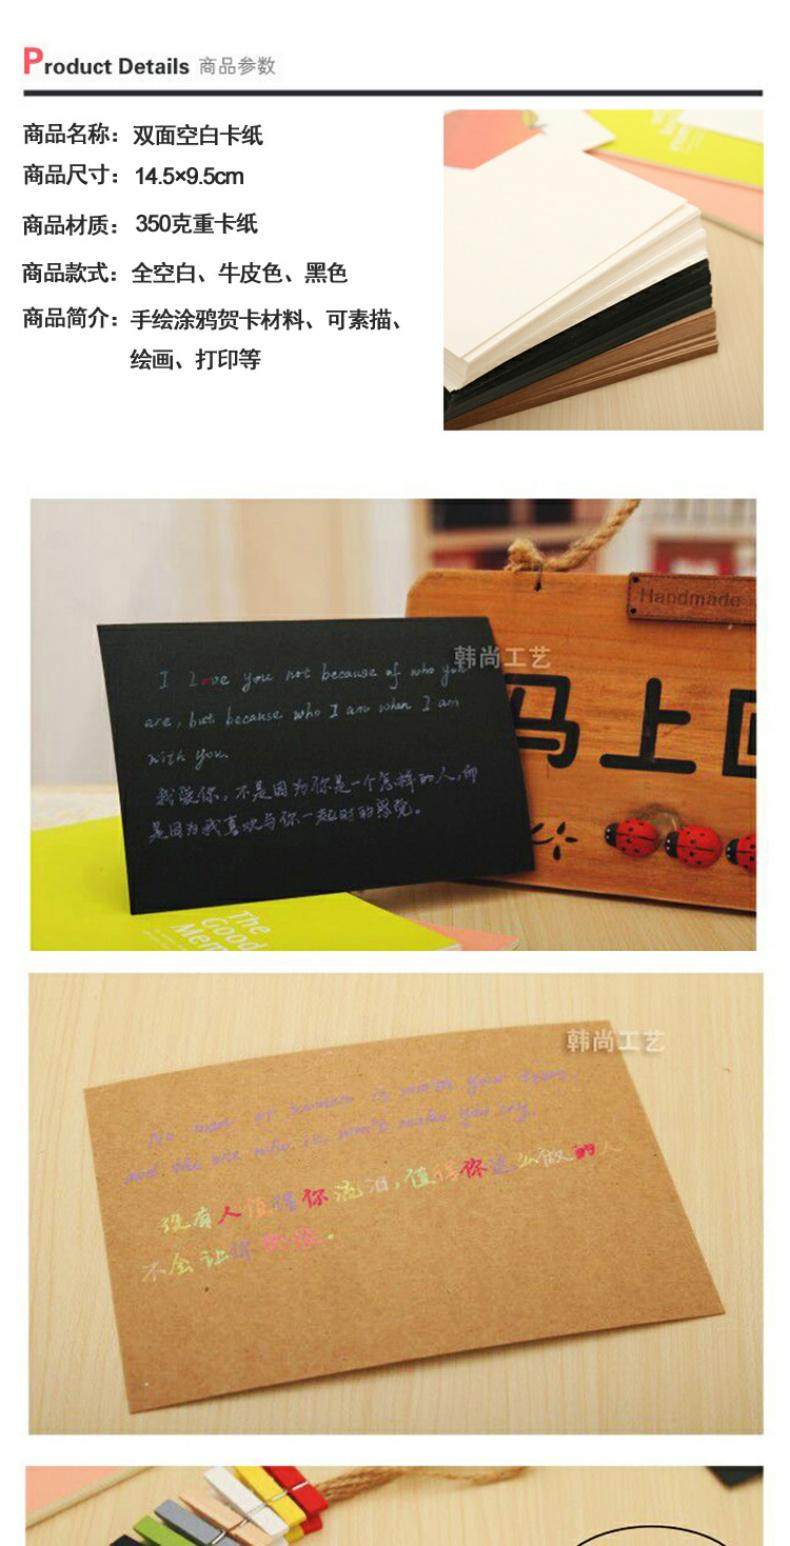 Product Details 商品参数
商品名称：双面空白卡纸
商品尺寸：14.5×9.5cm
商品材质：350克重卡纸
商品款式：全空白、牛皮色、黑色
商品简介：手绘涂鸦贺卡材料、可素描、
绘画、打印等
Handmade
韩尚工艺
马上回
I Love you not because of who you
are, but because who I am when I am
with you.
我爱你，不是因为你是一个怎样的人，而
是因为我喜欢与你一起时的感觉。
The
Good
Mem
韩尚工艺
No man or woman is worth your tears,
and the one who is, won't make you cry.
没有人值得你流泪，值得你这么做的人
不会让你哭泣。